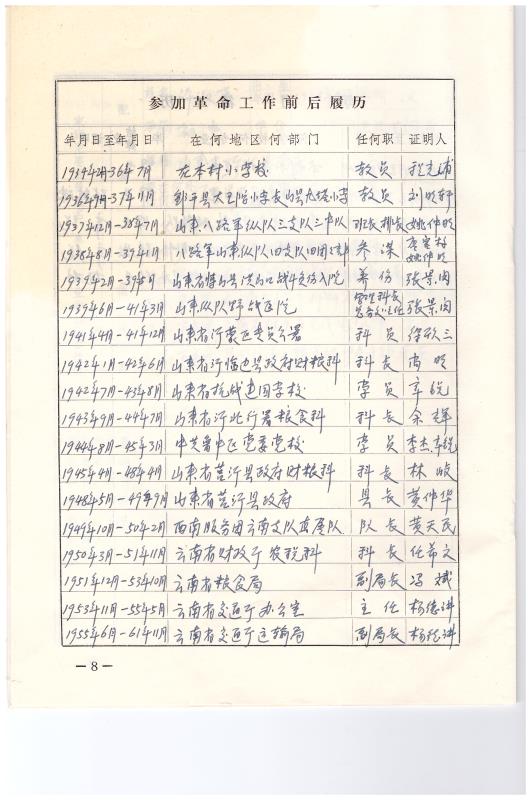 参加革命工作前后履历
年月日至年月日 在何地区何部门 任何职 证明人
1934年2月-36年7月 在本村小学校 教员
1936年9月-37年11月 邹平县 小学长山县 小学 教员 刘明轩
1937年12月-38年7月 山东八路军纵队三支队三中队 班长排长 姚仲明
1938年8月-39年1月 八路军山东纵队四支队四团 参谋 姚仲明
1939年2月-39年5月 山东省 县 养伤 张景尚
1939年6月-41年3月 山东纵队野战医院 管理科长 总务处主任 张景尚
1941年4月-41年12月 山东省沂蒙区专员公署 科员 徐 三
1942年1月-42年6月 山东省沂临边县政府财粮科 科长 高明
1942年7月-43年8月 山东省抗战建国学校 学员 辛锐
1943年9月-44年7月 山东省河北行署粮食科 科长 余辉
1944年8月-45年3月 中共鲁中区党委党校 学员 李杰 辛锐
1945年4月-48年4月 山东省莒沂县政府财粮科 科长 林
1948年5月-49年9月 山东省莒沂县政府 县长 黄伟华
1949年10月-50年2月 西南服务团云南支队 队 队长 黄天民
1950年3月-51年11月 云南省财政厅农税科 科长 任希文
1951年12月-53年10月 云南省粮食局 副局长 冯斌
1953年11月-55年5月 云南省交通厅办公室 主任 杨德洪
1955年6月-61年11月 云南省交通厅运输局 副局长 杨德洪
—8—